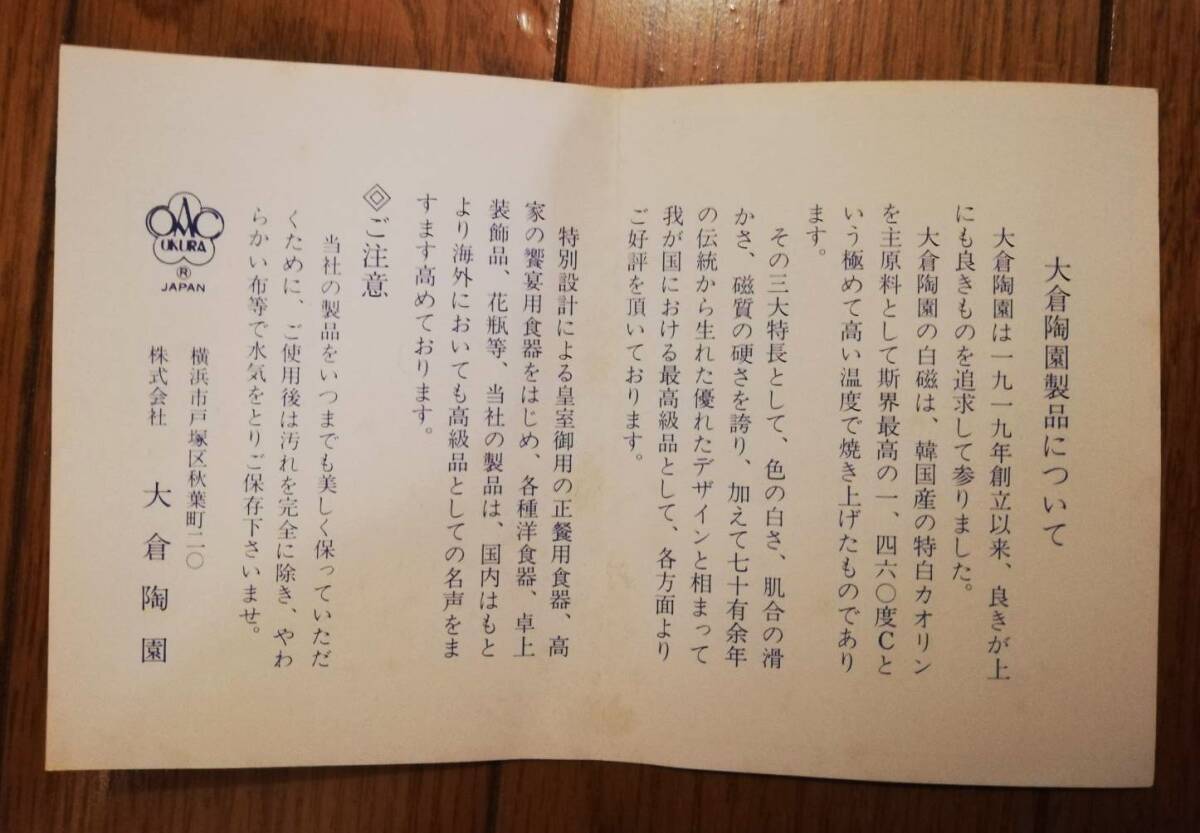 大倉陶園製品について
大倉陶園は一九一九年創立以来、良きが上
にも良きものを追求して参りました。
大倉陶園の白磁は、韓国産の特白カオリン
を主原料として斯界最高の一、四六〇度Cと
いう極めて高い温度で焼き上げたものであり
ます。
その三大特長として、色の白さ、肌合の滑
かさ、磁質の硬さを誇り、加えて七十有余年
の伝統から生れた優れたデザインと相まって
我が国における最高級品として、各方面より
ご好評を頂いております。
特別設計による皇室御用の正餐用食器、高
家の饗宴用食器をはじめ、各種洋食器、卓上
装飾品、花瓶等、当社の製品は、国内はもと
より海外においても高級品としての名声をま
すます高めております。
◇ご注意
当社の製品をいつまでも美しく保っていただ
くために、ご使用後は汚れを完全に除き、やわ
らかい布等で水気をとりご保存下さいませ。
横浜市戸塚区秋葉町二〇
株式会社 大倉陶園
OAC
OKURA
®
JAPAN